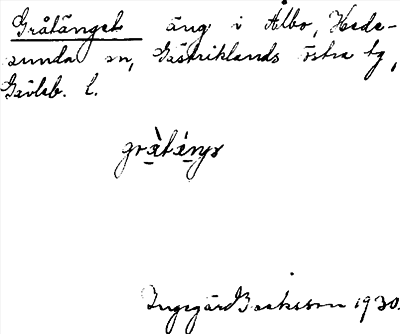 Gråtänget äng i Ålbo, Hede-
sunda sn, Gästriklands östra tg,
Gävleb. l.
gràtä́ngs
Ingegärd Isaksson 1930.